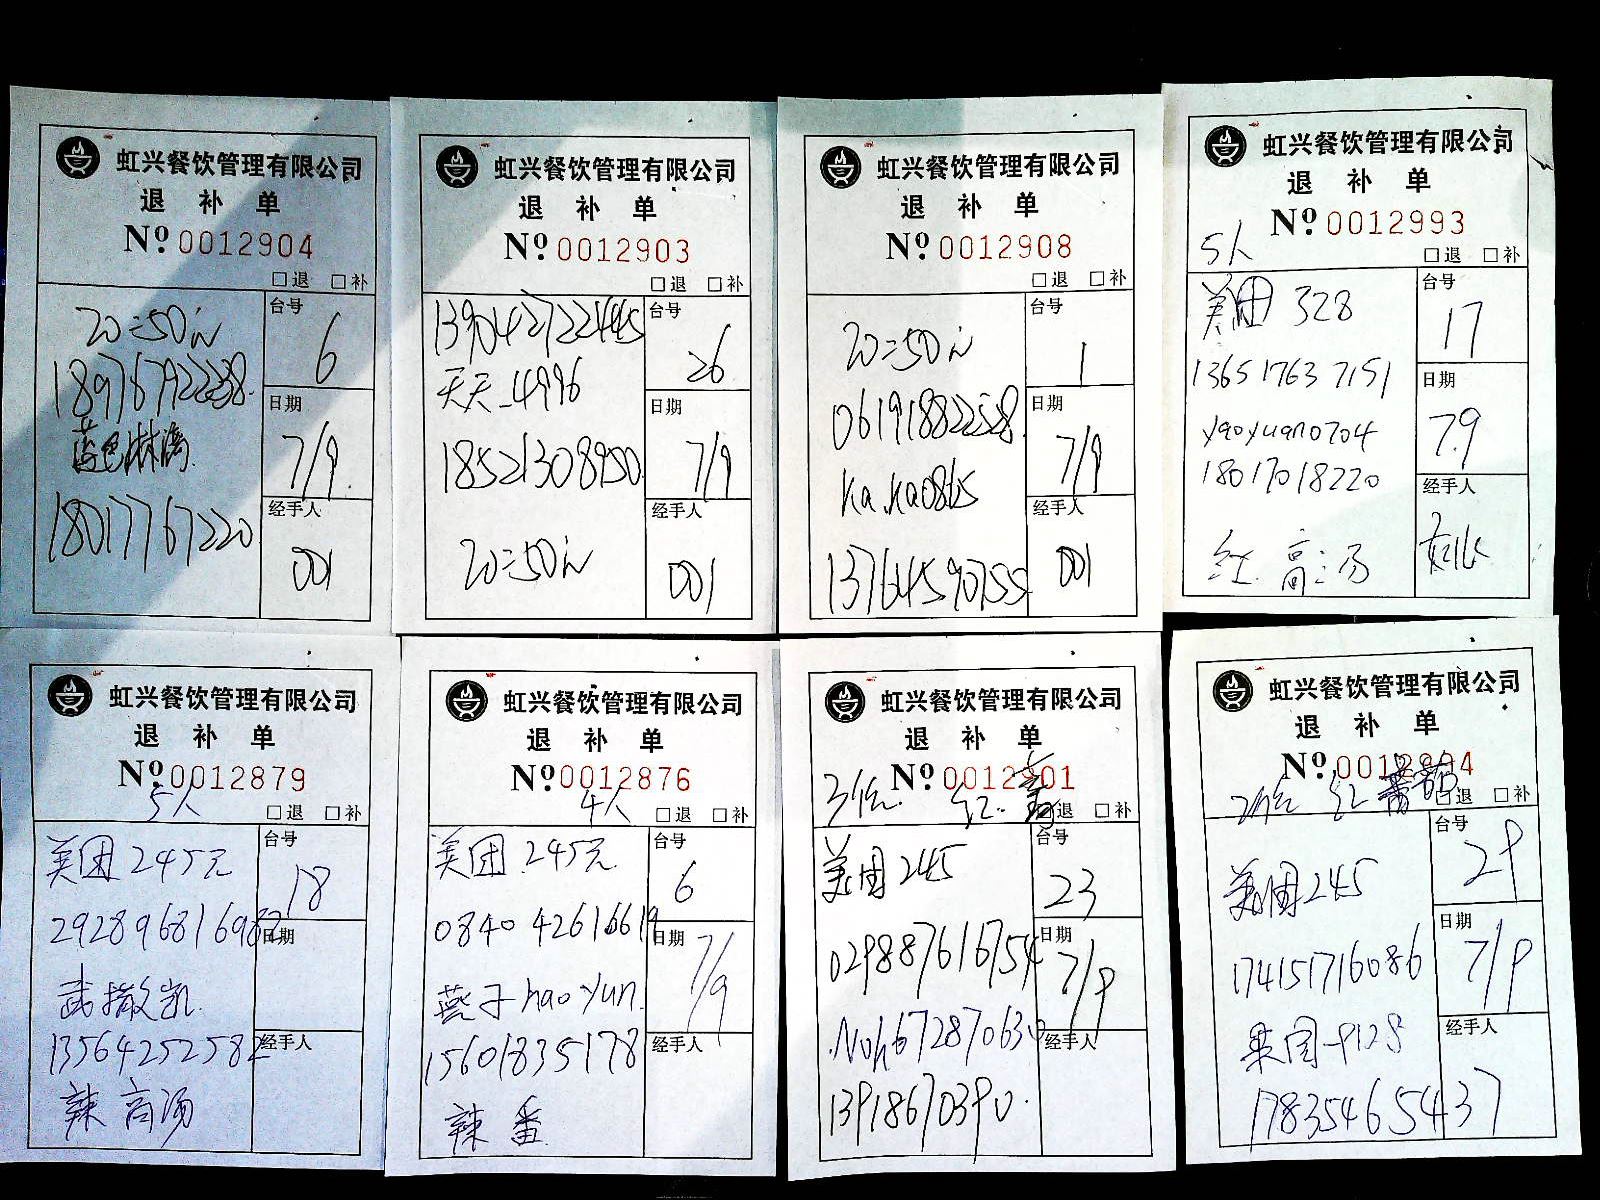 虹兴餐饮管理有限公司
退 补 单
Nº 0012904
□退 □补
20=50元
台号
6
18976792238
日期
7/9
蓝色淋漓
经手人
001
18017767220
虹兴餐饮管理有限公司
退 补 单
Nº 0012903
□退 □补
台号
26
天天_4996
日期
7/9
18521308950
经手人
001
20=50元
虹兴餐饮管理有限公司
退 补 单
Nº 0012908
□退 □补
20=50元
台号
1
061918822528
日期
7/9
经手人
001
13764590755
虹兴餐饮管理有限公司
退 补 单
Nº 0012993
5人
□退 □补
美团 328
台号
17
13651763 7151
日期
7.9
yaoyuan0704
18017018220
经手人
红.高汤
虹兴餐饮管理有限公司
退 补 单
Nº 0012879
5人
□退 □补
美团 245元
台号
18
292896816982
日期
13564252582
经手人
辣 高汤
虹兴餐饮管理有限公司
退 补 单
Nº 0012876
4人
□退 □补
美团 245元
台号
6
0840 42616619
日期
7/9
燕子haoyun
15601835178
经手人
辣 番
虹兴餐饮管理有限公司
退 补 单
Nº 0012901
3位 红.
□退 □补
美团 245
台号
23
029887616754
日期
7/9
13918670390
经手人
虹兴餐饮管理有限公司
退 补 单
2位 红 番茄
□退 □补
美团 245
台号
29
174151716086
日期
7/9
经手人
17835465437